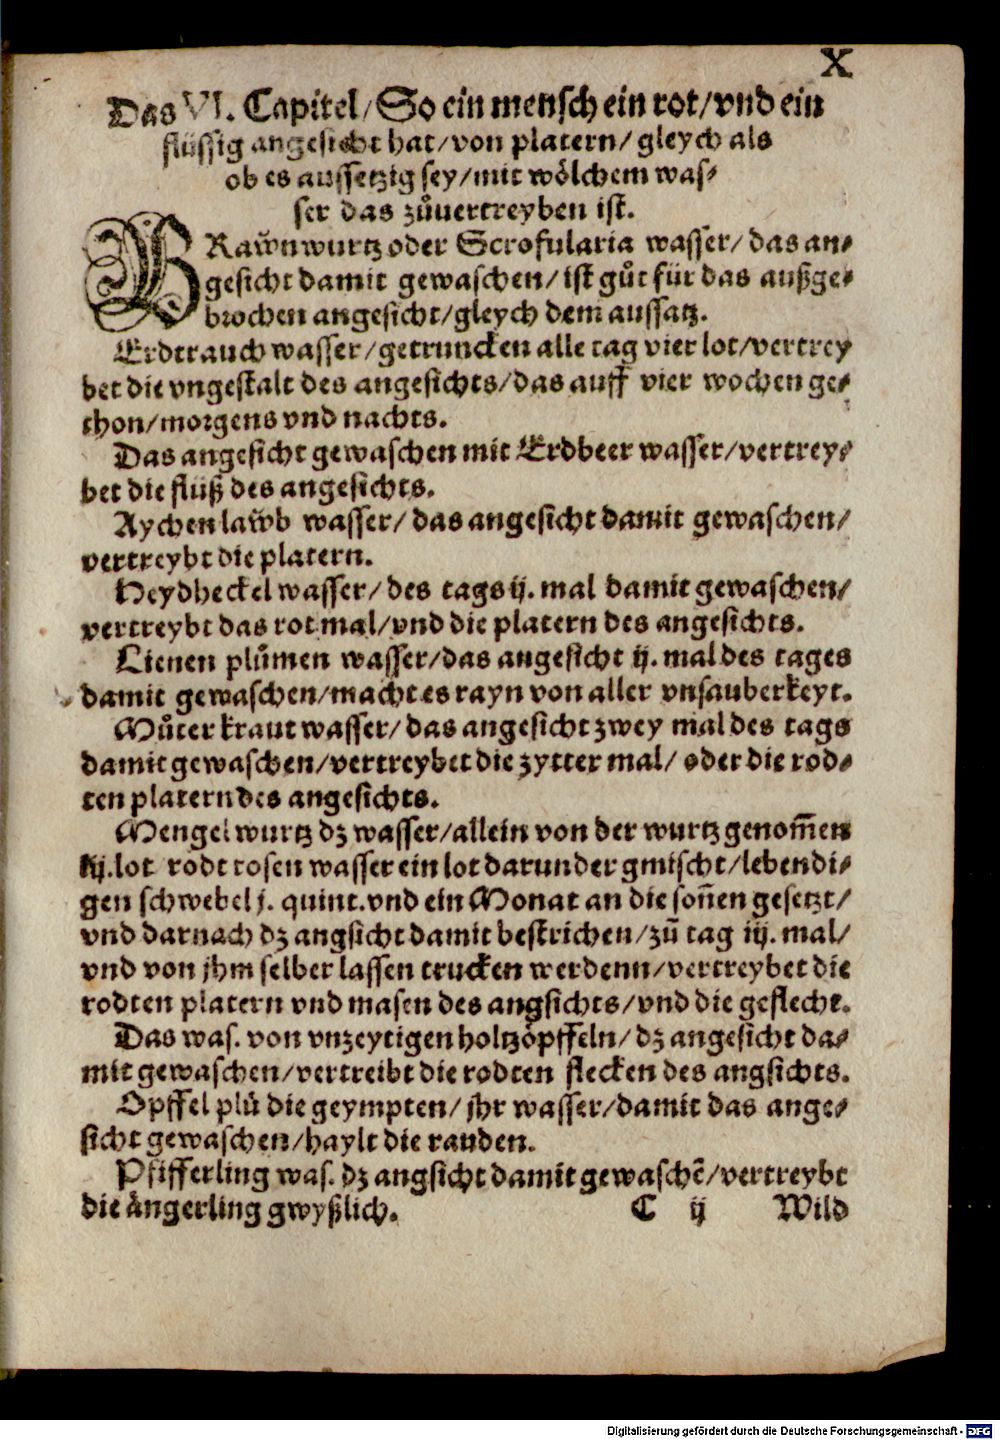 X
Das VI. Capitel/ So ein mensch ein rot/vnd ein
flüssig angesicht hat/von platern/ gleych als
ob es aussetzig sey/mit wölchem was⸗
ser das zůuertreyben ist.
BRawͤnwurtz oder Scrofularia wasser/ das an⸗
gesicht damit gewaschen/ ist gůt für das außge⸗
brochen angesicht/gleych dem aussatz.
Erdtrauch wasser/getruncken alle tag vier lot/vertrey
bet die vngestalt des angesichts/das auff vier wochen ge⸗
thon/morgens vnd nachts.
Das angesicht gewaschen mit Erdbeer wasser/vertrey⸗
bet die flüß des angesichts.
Aychen lawͤb wasser/ das angesicht damit gewaschen/
vertreybt die platern.
Heydheckel wasser/ des tags ij. mal damit gewaschen/
vertreybt das rot mal/vnd die platern des angesichts.
Lienen plůmen wasser/das angesicht ij. mal des tages
damit gewaschen/macht es rayn von aller vnsauberkeyt.
Můter kraut wasser/ das angesicht zwey mal des tags
damit gewaschen/vertreybet die zytter mal/ oder die rod⸗
ten platern des angesichts.
Mengel wurtz dz wasser/allein von der wurtz genom̄en
iij. lot rodt rosen wasser ein lot darunder gmischt/lebendi⸗
gen schwebel j. quint. vnd ein Monat an die son̄en gesetzt/
vnd darnach dz angsicht damit bestrichen/zů tag iij. mal/
vnd von jhm selber lassen trucken werdenn/vertreybet die
rodten platern vnd masen des angsichts/vnd die geflecht.
Das was. von vnzeytigen holtzöpffeln/ dz angesicht da⸗
mit gewaschen/vertreibt die rodten flecken des angsichts.
Opffel plů die geympten/ jhr wasser/damit das ange⸗
sicht gewaschen/haylt die rauden.
Pfifferling was. dz angsicht damit gewaschē/vertreybt
die ängerling gwyßlich. C ij Wild
Digitalisierung gefördert durch die Deutsche Forschungsgemeinschaft - DFG